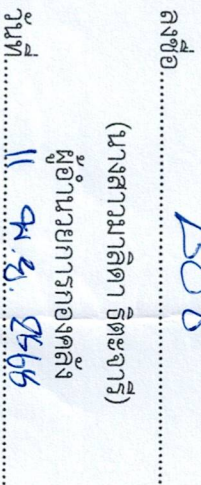 ลงชื่อ
(นางสาวมาลิดา ธิตะจารี)
ผู้อำนวยการกองคลัง
วันที่ 11 พ.ย. 2568